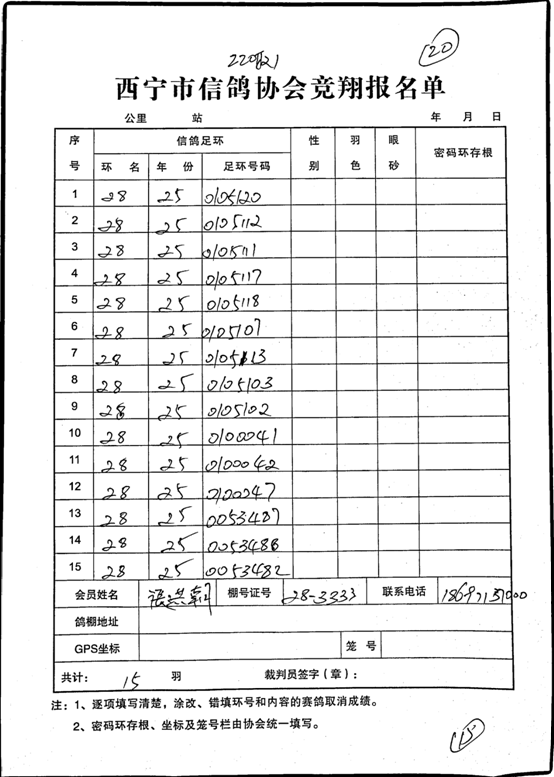 ⑳
西宁市信鸽协会竞翔报名单
公里 站 年 月 日
序号 信鸽足环 性别 羽色 眼砂 密码环存根
环名 年份 足环号码
1 28 25 0105120
2 28 25 0105112
3 28 25 0105111
4 28 25 0105117
5 28 25 0105118
6 28 25 0105107
7 28 25 0105113
8 28 25 0105103
9 28 25 0105102
10 28 25 0100041
11 28 25 0100042
12 28 25 0100047
13 28 25 0053487
14 28 25 0053488
15 28 25 0053482
会员姓名 棚号证号 28-3333 联系电话
鸽棚地址
GPS坐标 笼号
共计: 15 羽 裁判员签字（章）:
注：1、逐项填写清楚，涂改、错填环号和内容的赛鸽取消成绩。
2、密码环存根、坐标及笼号栏由协会统一填写。